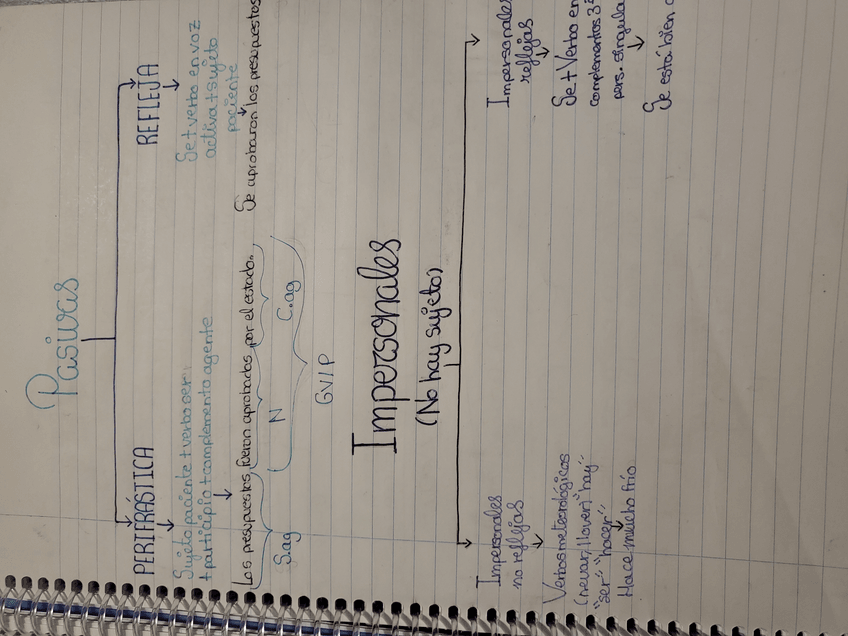 Pasivas
PERIFRÁSTICA
Sujeto paciente + verbo ser
+ participio + complemento agente
Los presupuestos fueron aprobados por el estado.
S.ag
N
C.ag
GV/P
REFLEJA
Se + verbo en voz
activa + sujeto
paciente
Se aprobaron los presupuestos
Impersonales
(No hay sujeto)
Impersonales
no reflejas
Verbos meteorológicos
(nevar, llover) "hay"
"ser" "hacer"
Hace mucho frío
Impersonales
reflejas
Se + Verbo en
complementos 3ª
pers. singula
Se está bien